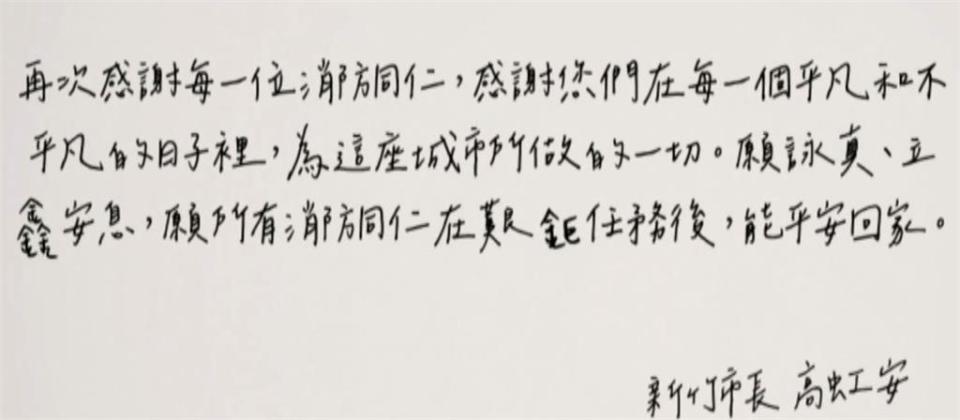 再次感謝每一位消防同仁，感謝您們在每一個平凡和不
平凡的日子裡，為這座城市所做的一切。願詠真、立
鑫安息，願所有消防同仁在艱鉅任務後，能平安回家。
新竹市長 高虹安